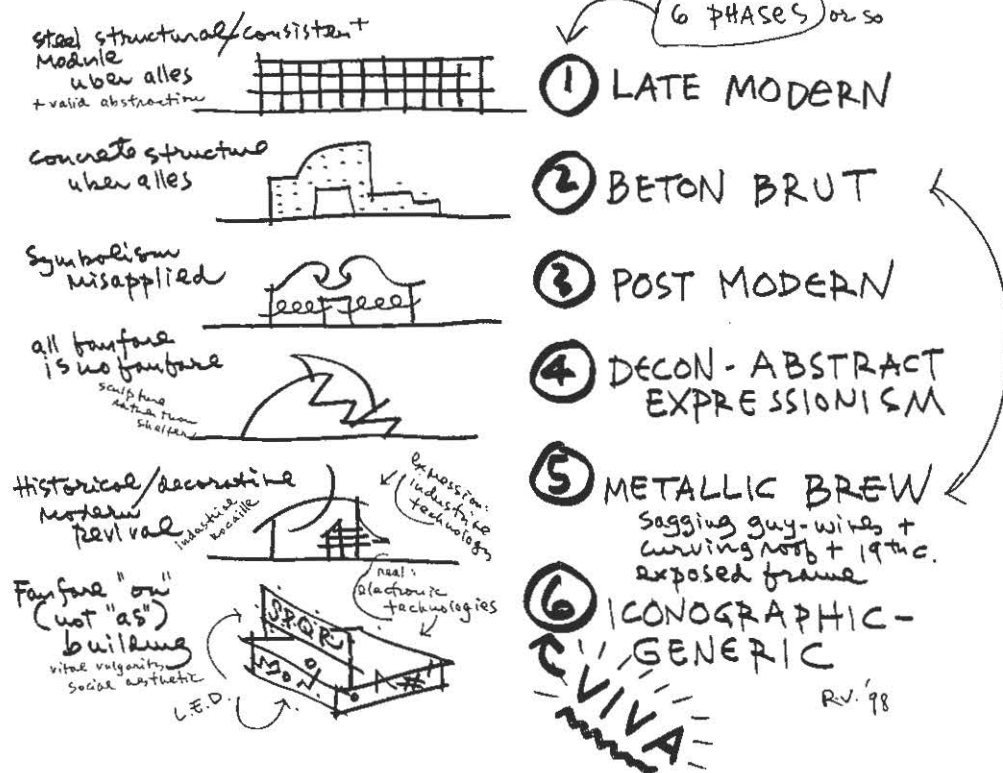 6 PHASES or so
steel structural/consistent
Module
uber alles
+ valid abstraction
1 LATE MODERN
concrete structure
uber alles
2 BETON BRUT
Symbolism
Misapplied
3 POST MODERN
all fanfare
is no fanfare
sculpture
rather than
shelter
4 DECON-ABSTRACT
EXPRESSIONISM
Historical/decorative
Modern
Revival
industrial
rocaille
expression:
industrial
technology
5 METALLIC BREW
sagging guy-wires +
curving roof + 19th c.
exposed frame
real:
electronic
technologies
Fanfare "on"
(not "as")
building
vital vulgarity
social aesthetic
L.E.D.
S.P.Q.R.
6 ICONOGRAPHIC-
GENERIC
VIVA
R.V. '98